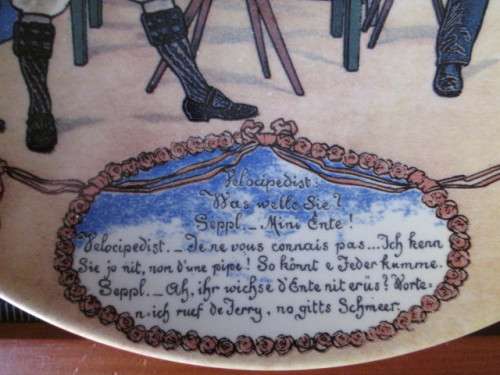 Velocipedist:
Was wells Sie?
Seppl._ Mini Ente!
Velocipedist._ Je ne vous connais pas...Ich kenn
Sie jo nit, non d'une pipe! So könnt e Jeder kumme.
Seppl._ Ah, ihr wichse d'Ente nit erüs? Worte-
n-ich ruef de Terry, no gitts Schmeer.